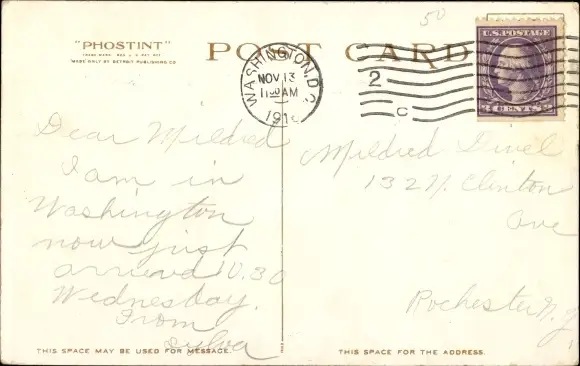 50
"PHOSTINT"
MADE ONLY BY DETROIT PUBLISHING CO.
POST CARD
WASHINGTON, D.C.
NOV 13
11 AM
2
C
U.S. POSTAGE
3 CENTS 3
Dear Mildred
I am in
Washington
now just
arrived 10.30
Wednesday.
From
Sylva
Mildred
132 N. Clinton
Ave
Rochester N.Y.
THIS SPACE MAY BE USED FOR MESSAGE.
THIS SPACE FOR THE ADDRESS.